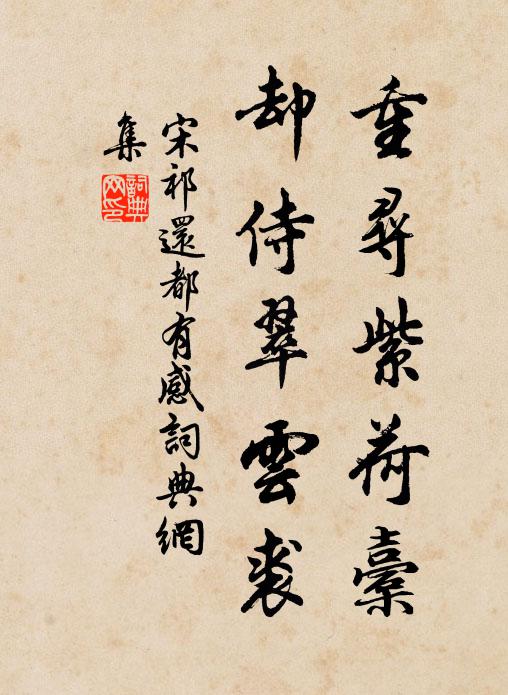 重尋紫荷橐
却侍翠雲裘
宋祁還都有感詞典網
集
詞典網印